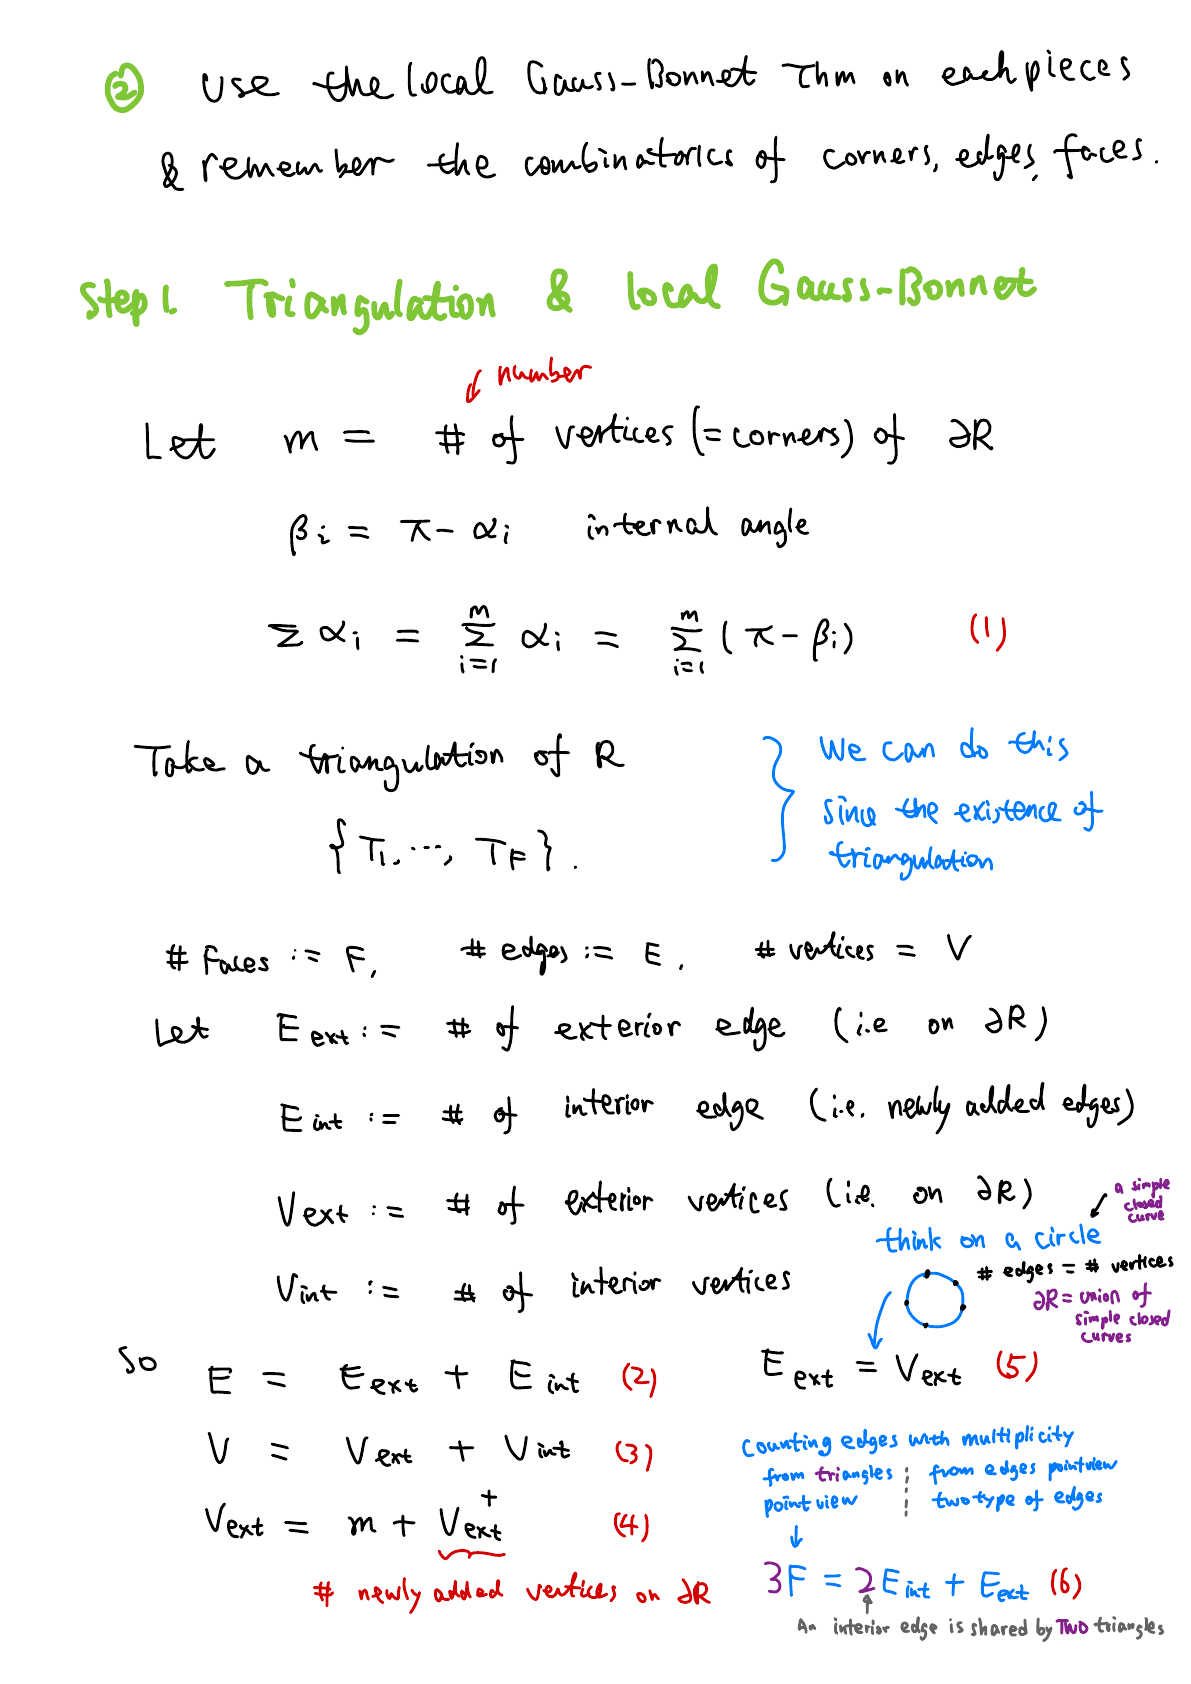 ② Use the local Gauss-Bonnet Thm on each pieces
& remember the combinatorics of corners, edges, faces.
Step 1. Triangulation & local Gauss-Bonnet
number
Let m = # of vertices (= corners) of ∂R
βi = π - αi internal angle
Σ αi = Σ_{i=1}^{m} αi = Σ_{i=1}^{m} (π - βi) (1)
Take a triangulation of R
{T1, ..., TF}.
We can do this
since the existence of
triangulation
# Faces := F, # edges := E, # vertices = V
Let E ext := # of exterior edge (i.e on ∂R)
E int := # of interior edge (i.e. newly added edges)
V ext := # of exterior vertices (i.e. on ∂R)
a simple
closed
curve
think on a circle
# edges = # vertices
∂R = union of
simple closed
curves
V int := # of interior vertices
So E = E ext + E int (2)
E ext = V ext (5)
V = V ext + V int (3)
V ext = m + V ext^+ (4)
# newly added vertices on ∂R
Counting edges with multiplicity
from triangles
point view
from edges point view
two type of edges
3F = 2 E int + E ext (6)
An interior edge is shared by TWO triangles